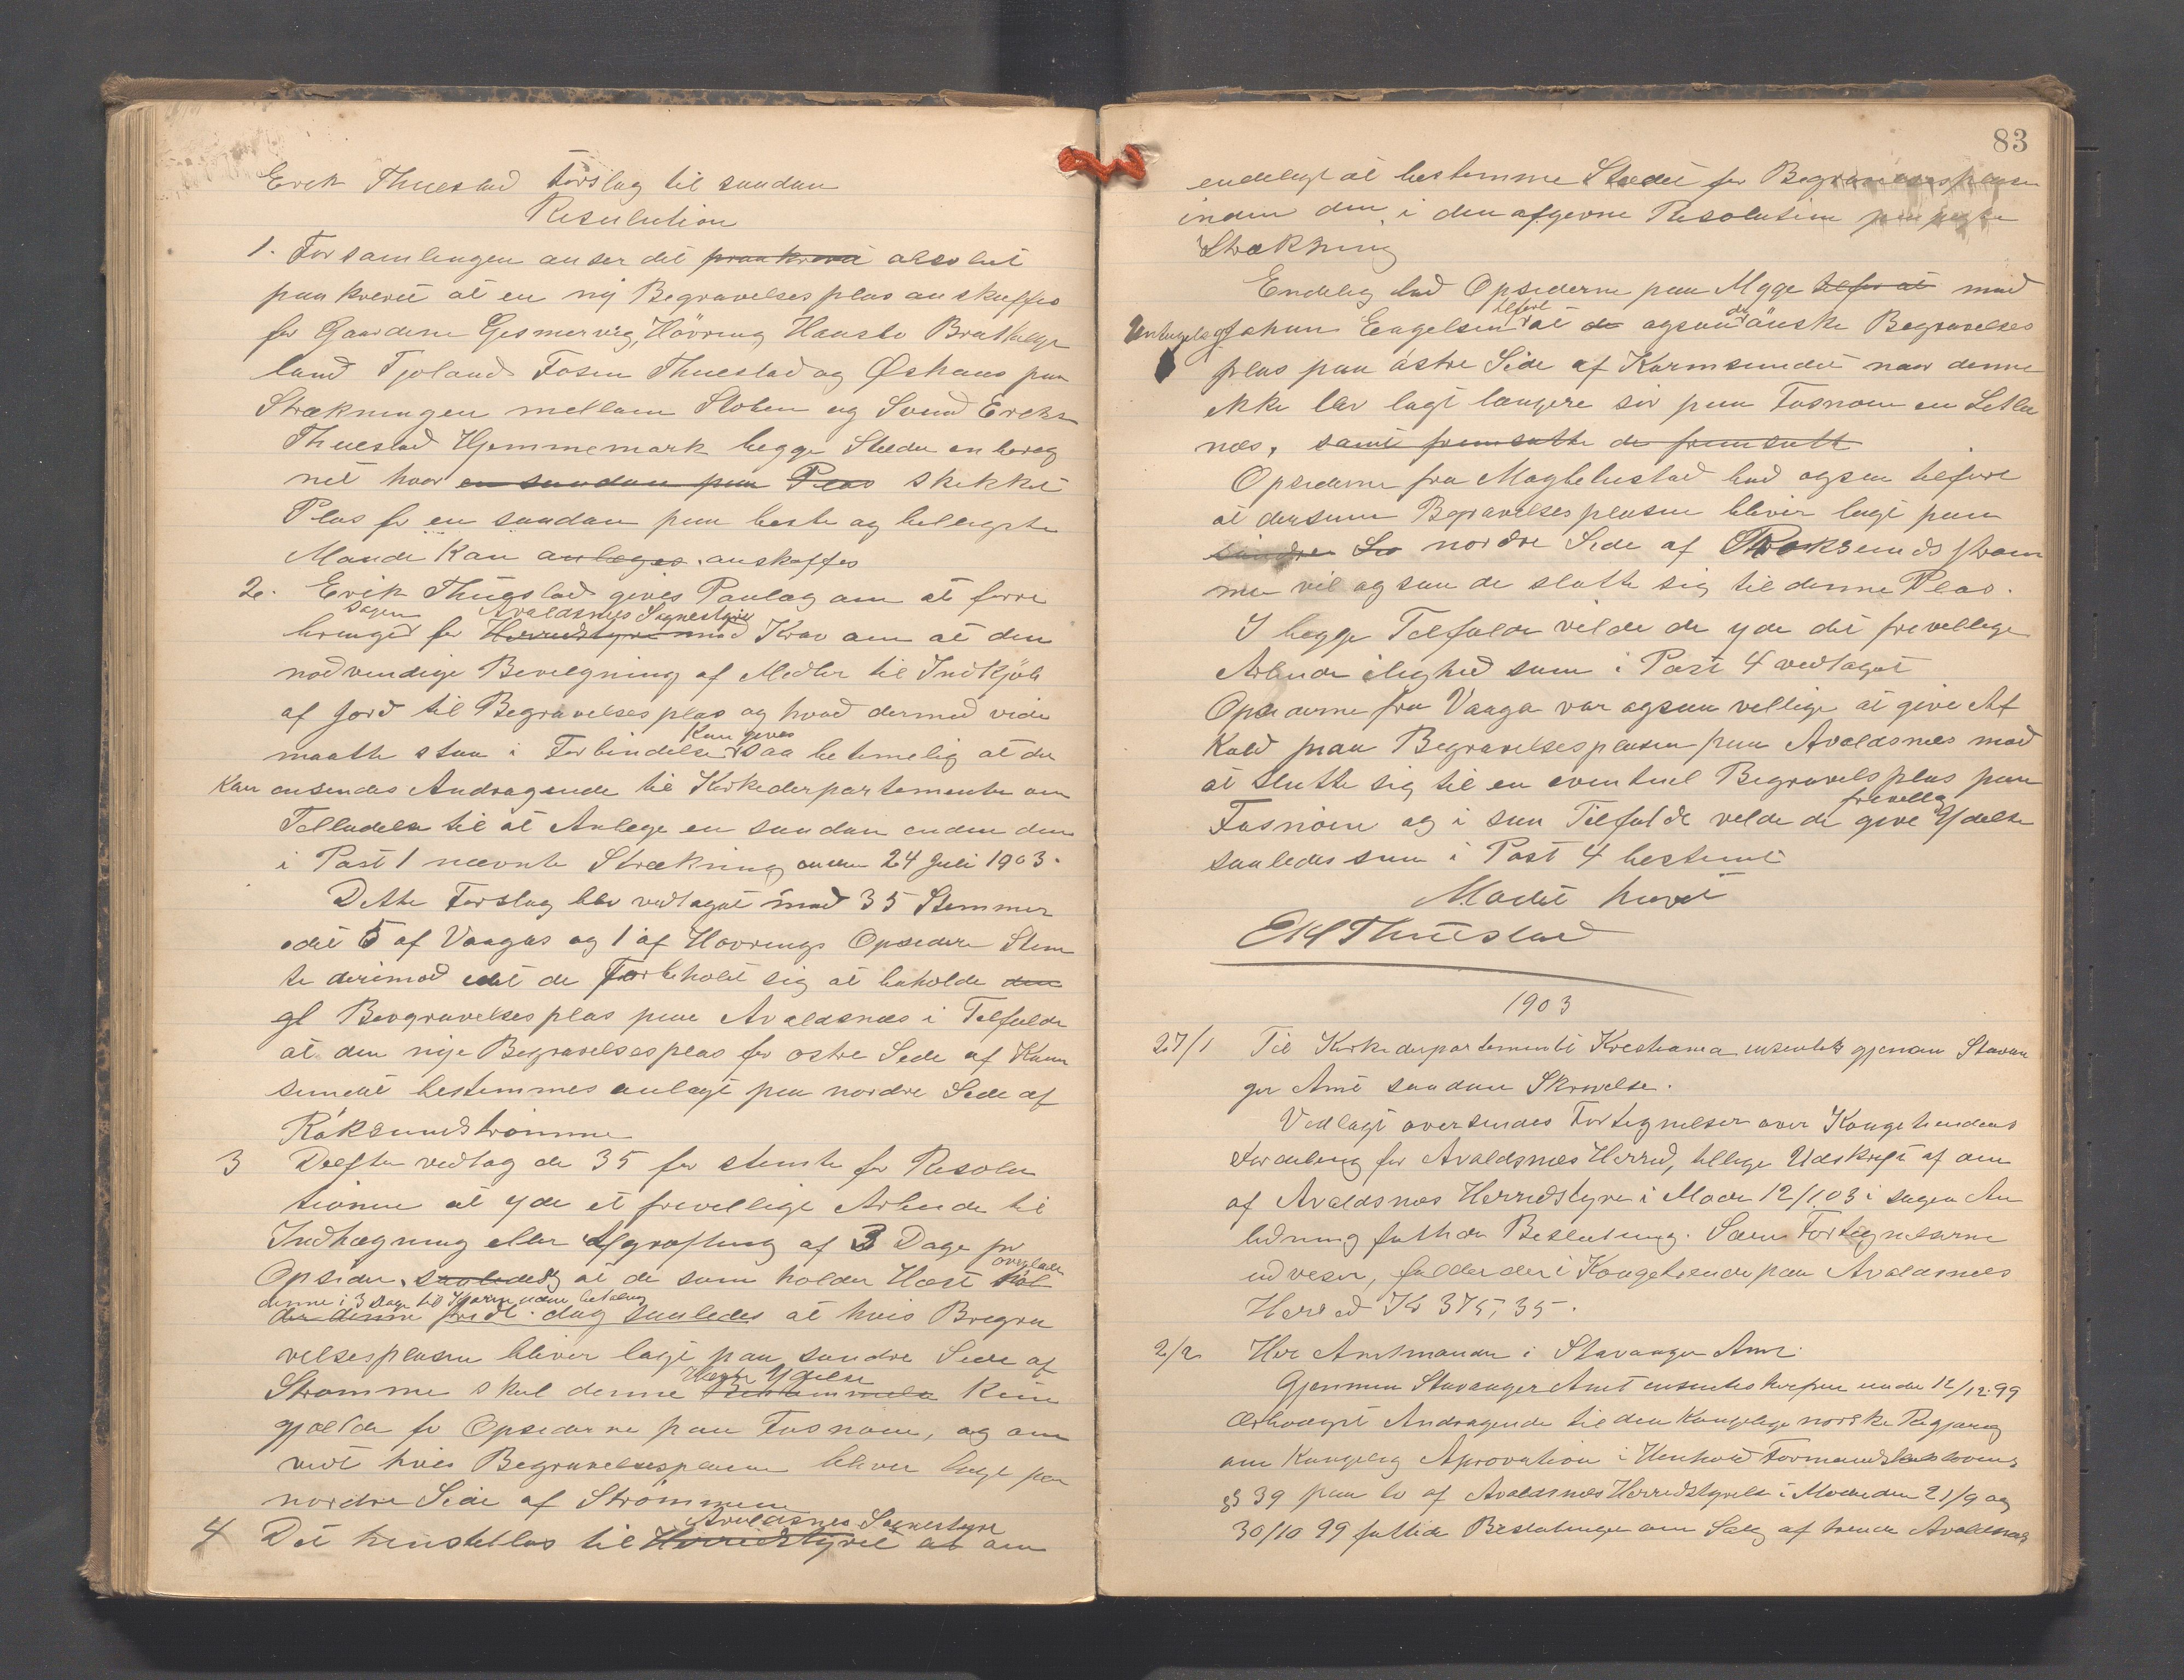 Erik Thuestad Forslag til saadan
Resulution
1. Forsamlingen anser det paakrevet absolut
paakrevet at en ny Begravelsesplas anskaffes
for Gaardene Gismervig, Hövring Hauske Brathelge
land Fjoland Fosen Thuestad og Öshaus paa
Strækningen mellem Stölen og Svend Eriksen
Thuestad Hjemmemark begge Steder en bereg
net hvor en saadan paa Plas skikket
Plas for en saadan paa beste og belegste
Maade kan anleges anskaffes
2. Erik Thuestad gives Paalæg om at
sagen Avaldsnes Sognestyre
bringes for Herredstyre med Krav om at den
nødvendige Bevilgning af Midler til Indkjøb
af Jord til Begravelsesplas og hvad dermed vider
Kan gives
maatte staa i Forbindelse saa betimelig at der
kan ensendes Andragende til Kirkedepartementer om
Telladelse til at Anlege en saadan enden den
i Post 1 nævnte Strækning enden 24 Juli 1903.
Dette Forslag blev vedtaget med 35 Stemmer
edet 5 af Vaagas og 1 af Hövrings Opsedere Stem
te derimod edet de forbeholdt sig at beholde den
gl Bevgravelsesplas paa Avaldsnes i Telfelde
at den nye Begravelsesplas for østre Sede af Karm
sundet bestemmes anlagt paa nordre Sede af
Röksundströmmen
3 Derefter vedtog de 35 for stemte for Resolu
tionen at yde et frevellige Arbeide til
Indhægning eller Afgröfting af 3 Dage pr
overlader
Opsidder saaledes at de som holder Hest
denne i 3 Dage til Kjøren uden betaling
der denne dag saaledes at hvis Begra
velsesplasen bliver lagt paa søndre Sede af
Denne Ydelse
Strömmen skal denne Bestemmelse kun
gjælde for Opsederne paa Fosnøen, og om
vedt hvis Begravelsesplasen bliver lagt paa
nordre Side af Strömmen
Avaldsnes Sognestyre
4 Det henstelles til Herredstyret at om
83
endeligt at bestemme Stedet for Begravelsesplasen
inden den i den afgevne Resolution paapegte
Strækning
Endelig lod Opsederne paa Mygge tilføre at mod
tilføre de
Undtagelse af Johan Engelsen at de ogsaa önsker Begravelses
plas paa østre Side af Karmsundet naar denne
ikke blev lagt længere sør paa Fosnøen en Litle
nes, samt fremsatte de fremsatt
Opsederne fra Magbelestad lod ogsaa telføre
at dersom Begravelsesplasen bliver lagt paa
söndre Se nordre Side af Röksundström
men vil ogsaa de slutte sig til denne Plas.
I begge Telfælde vilde de yde det frevellege
Arbeide i lighed som i Post 4 vedtaget
Opsederne fra Vaaga var ogsaa vellige at give Af
Kald paa Begravelsesplasen paa Avaldsnes mod
at slutte sig til en eventuel Begravelsplas paa
frevellig
Fosnöen og i saa Tilfælde velde de give Ydelse
saaledes som i Post 4 bestemt
Mødet hævet
EH Thuestad
1903
27/1 Til Kirkedepartementet Krestiania ensentes gjenom Stavan
ger Amt saadan Skrivelse.
Vedlagt oversendes Fortegnelser over Kongetiendens
Fordeling for Avaldsnes Herred, tellige Udskrift af om
af Avaldsnes Herredstyre i Møde 12/1 03 i sagen An
ledning fatthede Beslutning. Som Fortegnelserne
udviser, falder der i Kongetiende paa Avaldsnes
Herred Kr 375,35.
2/2 Her Amtmanden i Stavanger Amt.
Gjennem Stavanger Amt ensentes herfra under 12/12 99
ærbødigst Andragende til den Kongelige norske Regjering
om Kongelig Aprovation i Henhold Formandskabslovens
§ 39 paa to af Avaldsnes Herredstyrelse i Møderne 21/9 og
30/10 99 fattede Beslutninger om Salg af tvende Avaldsnes